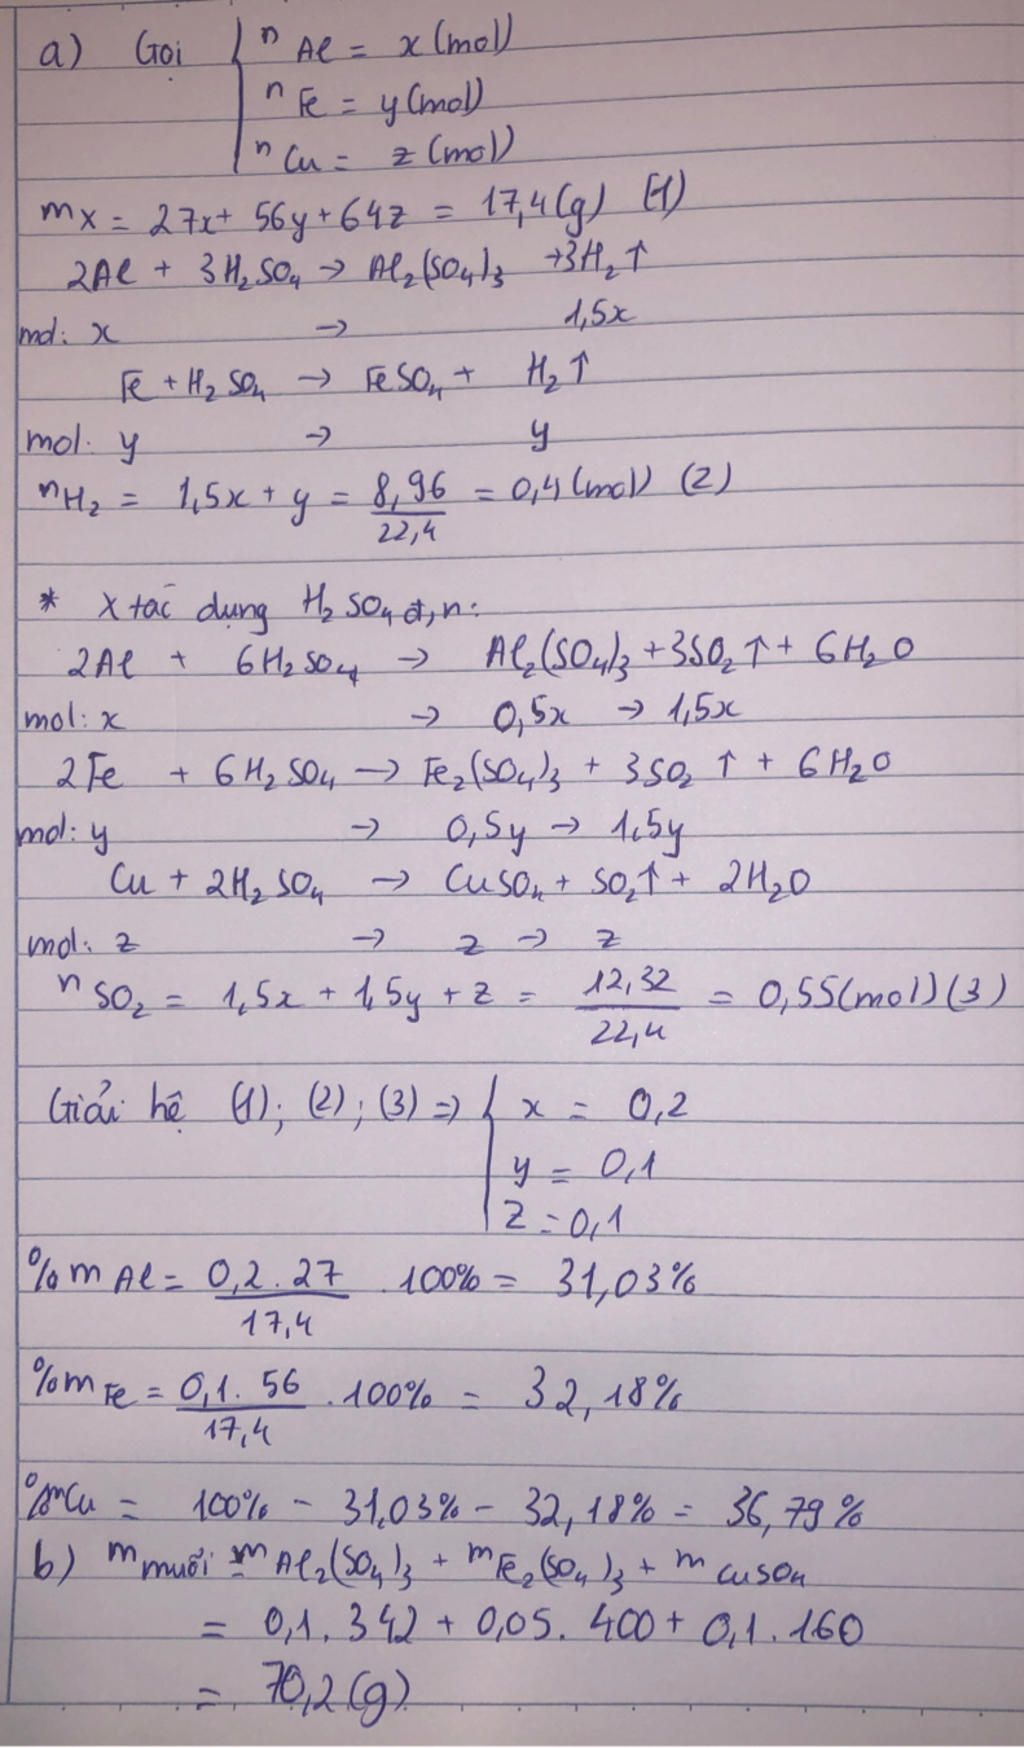 a) Gọi { nAl = x (mol)
nFe = y (mol)
nCu = z (mol)
mX = 27x + 56y + 64z = 17,4 (g) (1)
2Al + 3H₂SO₄ → Al₂(SO₄)₃ + 3H₂↑
mol: x → 1,5x
Fe + H₂SO₄ → FeSO₄ + H₂↑
mol: y → y
nH₂ = 1,5x + y = 8,96/22,4 = 0,4 (mol) (2)
* X tác dụng H₂SO₄ đ,n:
2Al + 6H₂SO₄ → Al₂(SO₄)₃ + 3SO₂↑ + 6H₂O
mol: x → 0,5x → 1,5x
2Fe + 6H₂SO₄ → Fe₂(SO₄)₃ + 3SO₂↑ + 6H₂O
mol: y → 0,5y → 1,5y
Cu + 2H₂SO₄ → CuSO₄ + SO₂↑ + 2H₂O
mol: z → z → z
nSO₂ = 1,5x + 1,5y + z = 12,32/22,4 = 0,55 (mol) (3)
Giải hệ (1); (2); (3) => { x = 0,2
y = 0,1
z = 0,1
%mAl = 0,2.27/17,4 .100% = 31,03%
%mFe = 0,1.56/17,4 .100% = 32,18%
%mCu = 100% - 31,03% - 32,18% = 36,79%
b) m muối = mAl₂(SO₄)₃ + mFe₂(SO₄)₃ + mCuSO₄
= 0,1.342 + 0,05.400 + 0,1.160
= 70,2 (g)